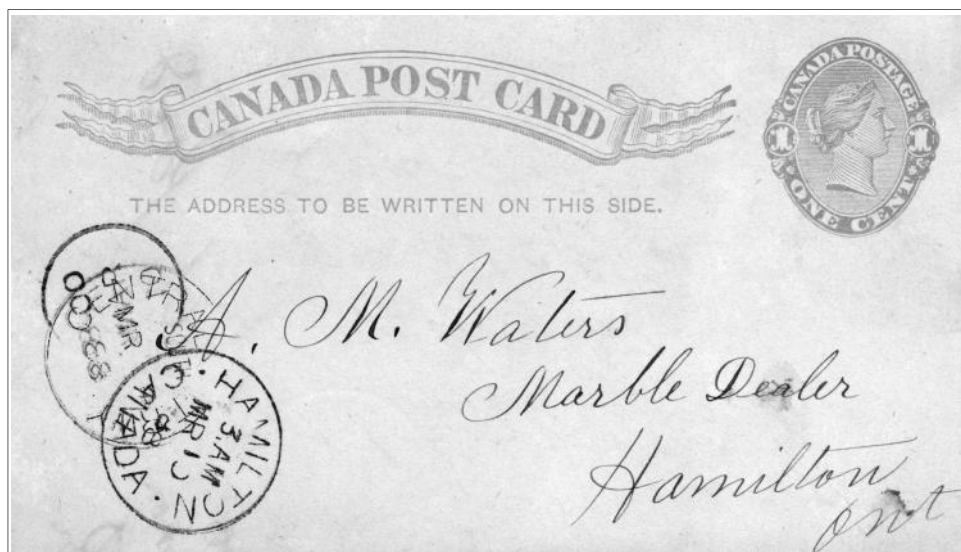 CANADA POST CARD
CANADA POSTAGE
1 1
ONE CENT
THE ADDRESS TO BE WRITTEN ON THIS SIDE.
A. M. Waters
Marble Dealer
Hamilton
Ont
HAMILTON
CANADA
3.AM
MR
MR